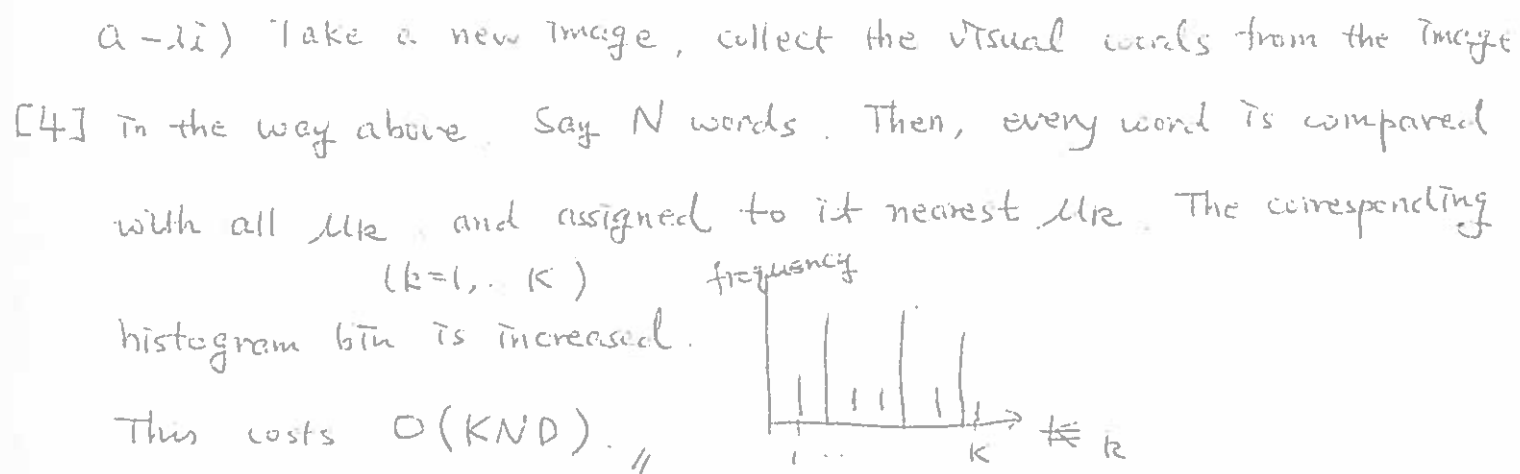 a-ii) Take a new image, collect the visual words from the image
[4] in the way above Say N words. Then, every word is compared
with all μk and assigned to it nearest μk. The corresponding
(k=1,.. K)
frequency
histogram bin is increased.
This costs O(KND). //
1 .. K k